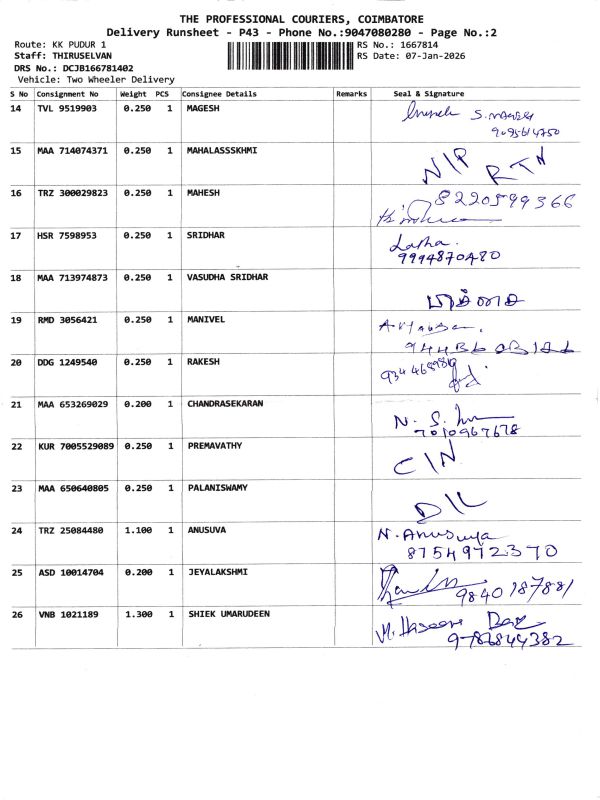 THE PROFESSIONAL COURIERS, COIMBATORE
Delivery Runsheet - P43 - Phone No.:9047080280 - Page No.:2
Route: KK PUDUR 1
Staff: THIRUSELVAN
DRS No.: DCJB166781402
Vehicle: Two Wheeler Delivery
RS No.: 1667814
RS Date: 07-Jan-2026
S No Consignment No Weight PCS Consignee Details Remarks Seal & Signature
14 TVL 9519903 0.250 1 MAGESH
15 MAA 714074371 0.250 1 MAHALASSSKHMI N/P RTN
16 TRZ 300029823 0.250 1 MAHESH 8220599366
17 HSR 7598953 0.250 1 SRIDHAR Latha.
9994870480
18 MAA 713974873 0.250 1 VASUDHA SRIDHAR
19 RMD 3056421 0.250 1 MANIVEL
20 DDG 1249540 0.250 1 RAKESH
21 MAA 653269029 0.200 1 CHANDRASEKARAN
7010967678
22 KUR 7005529089 0.250 1 PREMAVATHY C/N
23 MAA 650640805 0.250 1 PALANISWAMY D/L
24 TRZ 25084480 1.100 1 ANUSUVA N. Anusuya
8754972370
25 ASD 10014704 0.200 1 JEYALAKSHMI
9840187881
26 VNB 1021189 1.300 1 SHIEK UMARUDEEN
9786844382